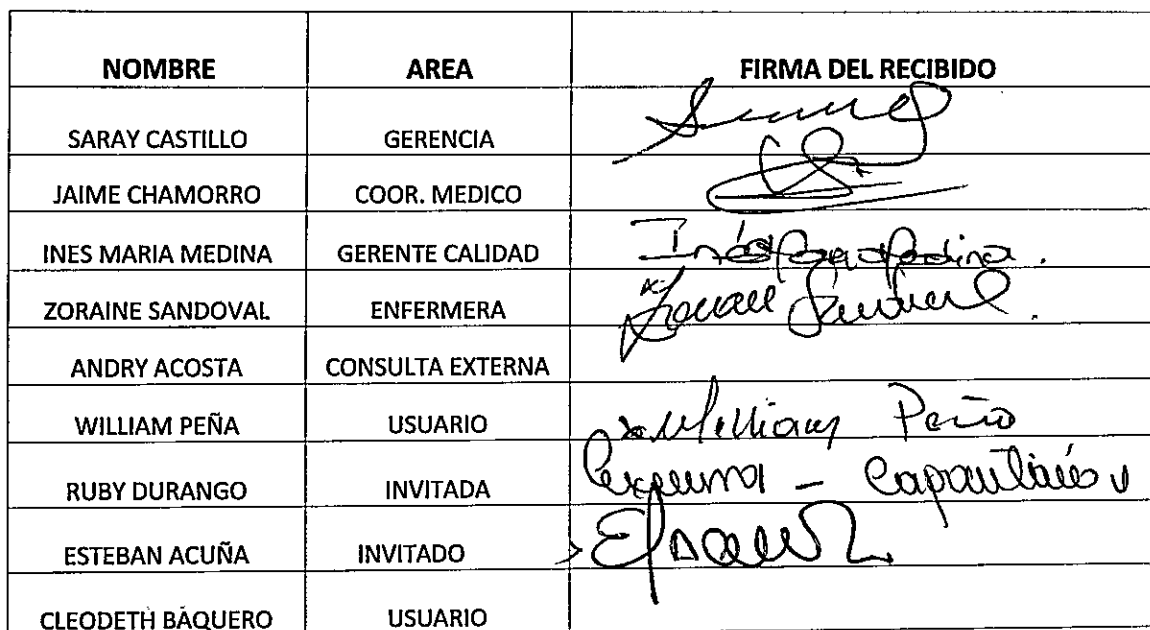 NOMBRE AREA FIRMA DEL RECIBIDO
SARAY CASTILLO GERENCIA
JAIME CHAMORRO COOR. MEDICO
INES MARIA MEDINA GERENTE CALIDAD
ZORAINE SANDOVAL ENFERMERA
ANDRY ACOSTA CONSULTA EXTERNA
WILLIAM PEÑA USUARIO William Peña
RUBY DURANGO INVITADA
ESTEBAN ACUÑA INVITADO
CLEODETH BAQUERO USUARIO